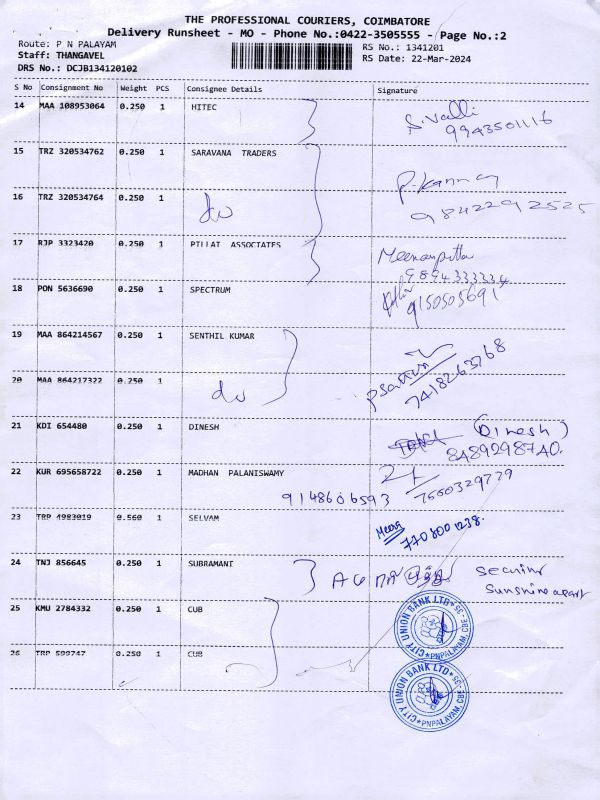 THE PROFESSIONAL COURIERS, COIMBATORE
Delivery Runsheet - MO - Phone No.:0422-3505555 - Page No.:2
Route: P N PALAYAM
Staff: THANGAVEL
DRS No.: DCJB134120102
RS No.: 1341201
RS Date: 22-Mar-2024
S No Consignment No Weight PCS Consignee Details Signature
14 MAA 108953064 0.250 1 HITEC S. Valli
9943501116
15 TRZ 320534762 0.250 1 SARAVANA TRADERS
16 TRZ 320534764 0.250 1 do
9842292525
17 RJP 3323420 0.250 1 PILLAI ASSOCIATES
9894333334
18 PON 5636690 0.250 1 SPECTRUM
9150505691
19 MAA 864214567 0.250 1 SENTHIL KUMAR
20 MAA 864217322 0.250 1 do
7418263768
21 KDI 654480 0.250 1 DINESH (Dinesh)
8489298740.
22 KUR 695658722 0.250 1 MADHAN PALANISWAMY
9148606593
23 TRP 4983019 0.560 1 SELVAM
24 TNJ 856645 0.250 1 SUBRAMANI
sunshine apart
25 KMU 2784332 0.250 1 CUB
CITY UNION BANK LTD
PNPALAYAM, CBE-35
26 TRP 599747 0.250 1 CUB
CITY UNION BANK LTD
PNPALAYAM, CBE-35